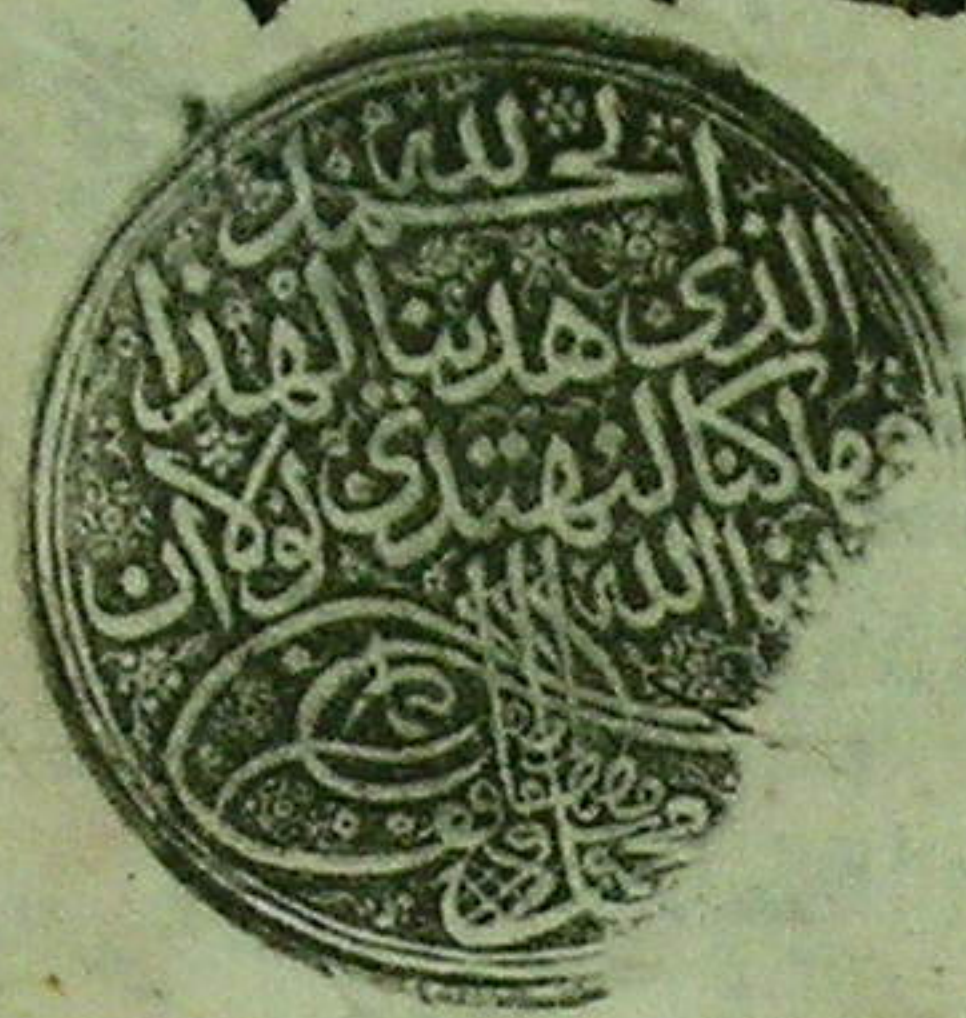 الحمد لله
الذى هدينا لهذا
وما كنا لنهتدى لولا ان
نا الله